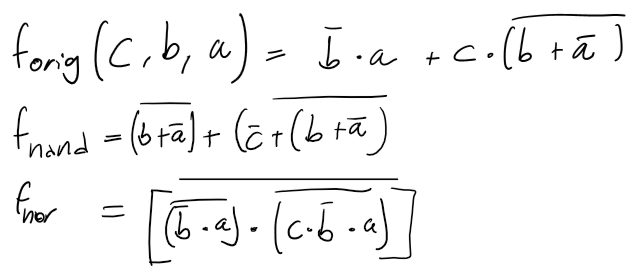 f_orig(c, b, a) = b̄·a + c·(\overline{b + ā})
f_nand = (\overline{b+ā}) + (\overline{c̄+(b+ā)})
f_nor = [\overline{(\overline{b̄·a})·(\overline{c·b̄·a})}]